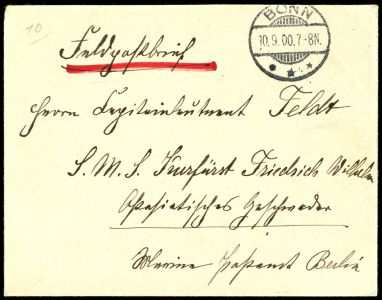 10
Feldpostbrief
BONN
10.9.00.7-8N.
Herrn Capitainleutnant Feldt
S. M. S. Kurfürst Friedrich Wilhelm
Ostasiatisches Geschwader
Marine Postamt Berlin